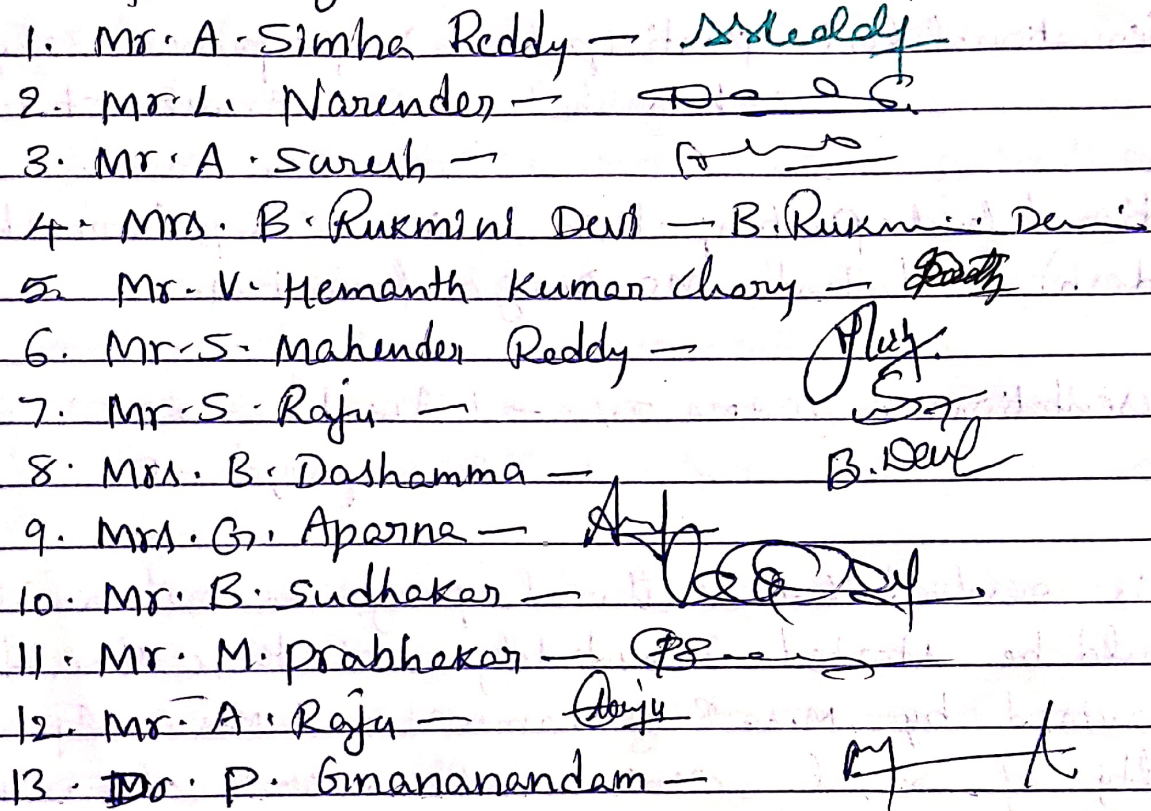 1. Mr. A. Simha Reddy — SSReddy
2. Mr. L. Narender —
3. Mr. A. Suresh —
4. Mrs. B. Rukmini Devi — B. Rukmini Devi
5. Mr. V. Hemanth Kumar Chary —
6. Mr. S. Mahender Reddy —
7. Mr. S. Raju —
8. Mrs. B. Dashamma — B. Devi
9. Mrs. G. Aparna —
10. Mr. B. Sudhakar —
11. Mr. M. Prabhakar —
12. Mr. A. Raju —
13. Dr. P. Gnananandam —